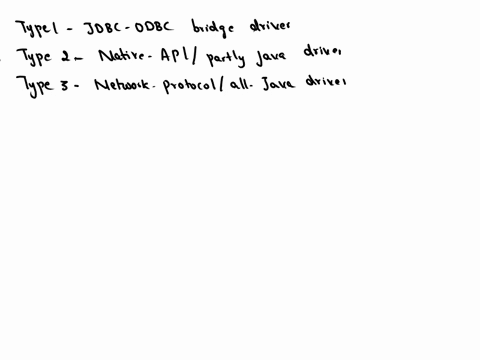 Type 1 - JDBC-ODBC bridge driver
Type 2 - Native-API/ partly java driver
Type 3 - Network-protocol/ all-Java driver